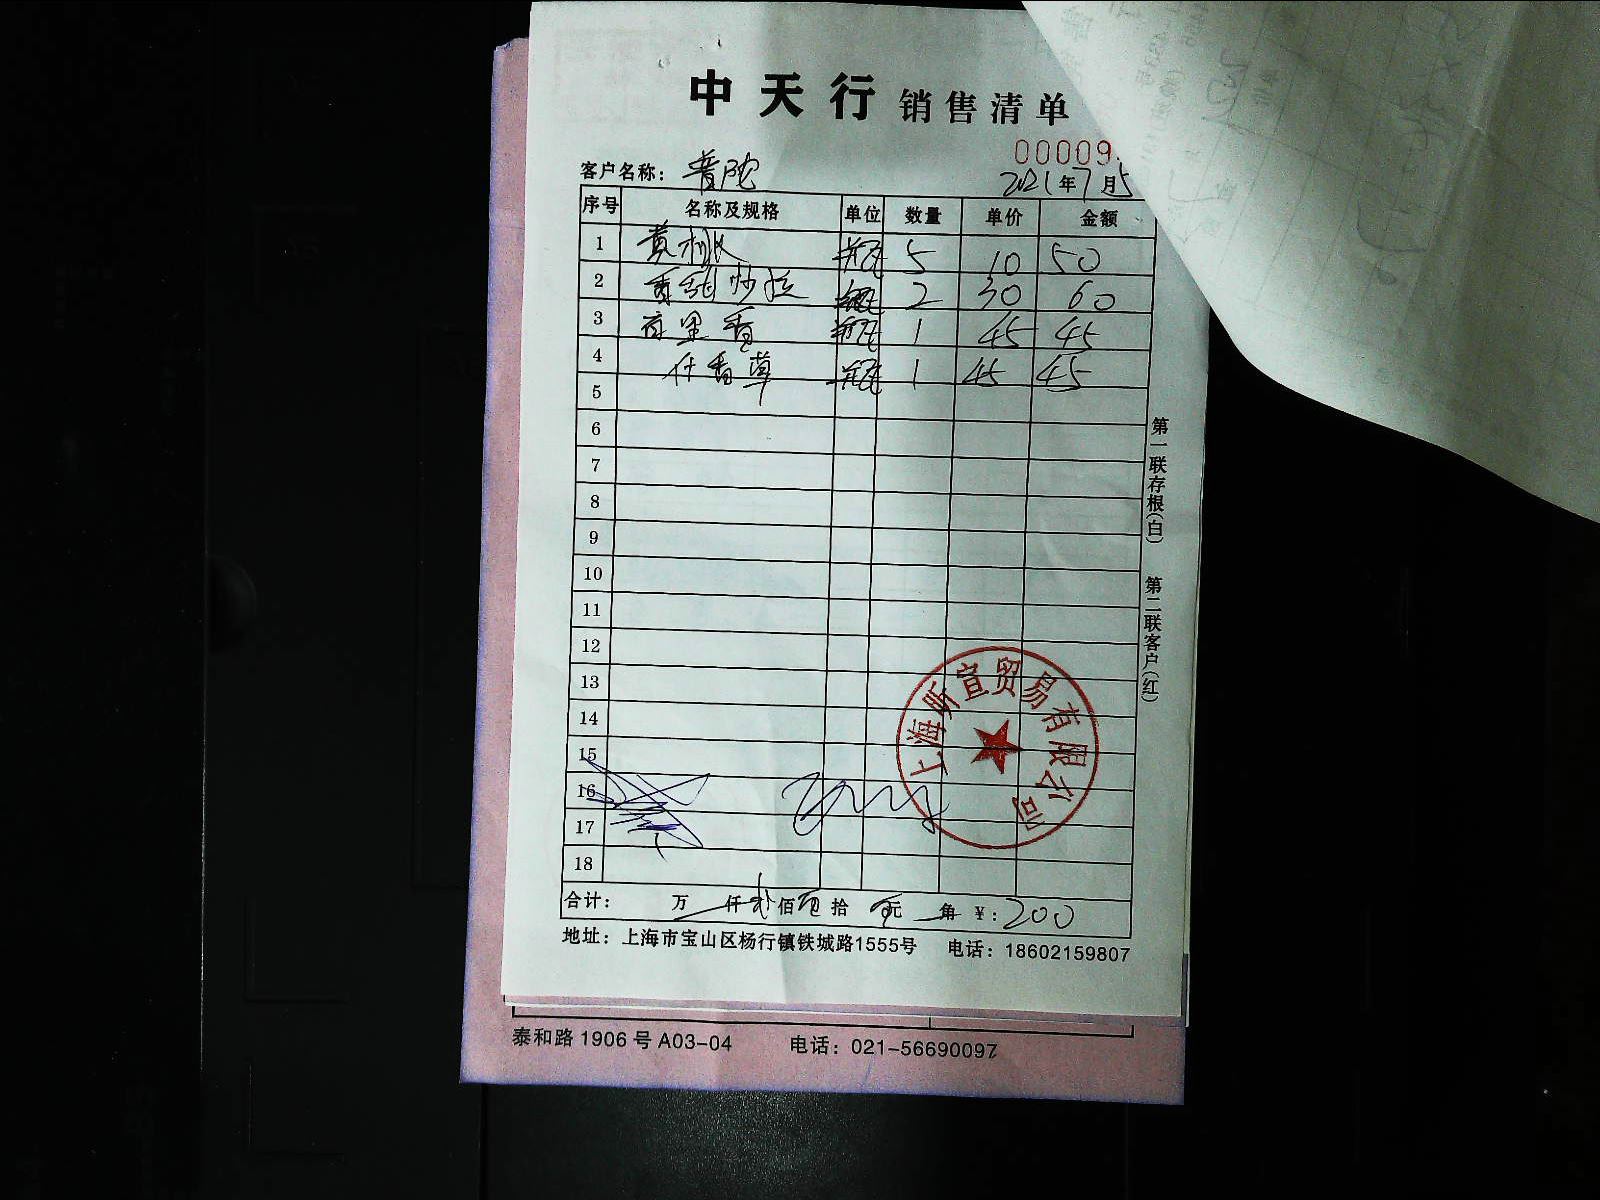 中天行 销售清单
00009
客户名称： 普陀 2021年7月5
序号 名称及规格 单位 数量 单价 金额
1 黄桃 瓶 5 10 50
2 瓶 2 30 60
3 百里香 瓶 1 45 45
4 香草 瓶 1 45 45
5
6
7
8
9
10
11
12
13
14
15
16
17
18
合计： 万 仟 贰 佰 拾 元 角 ¥：200
地址：上海市宝山区杨行镇铁城路1555号 电话：18602159807
第一联存根(白) 第二联客户(红)
上海昕宣贸易有限公司
泰和路 1906 号 A03-04 电话：021-56690097